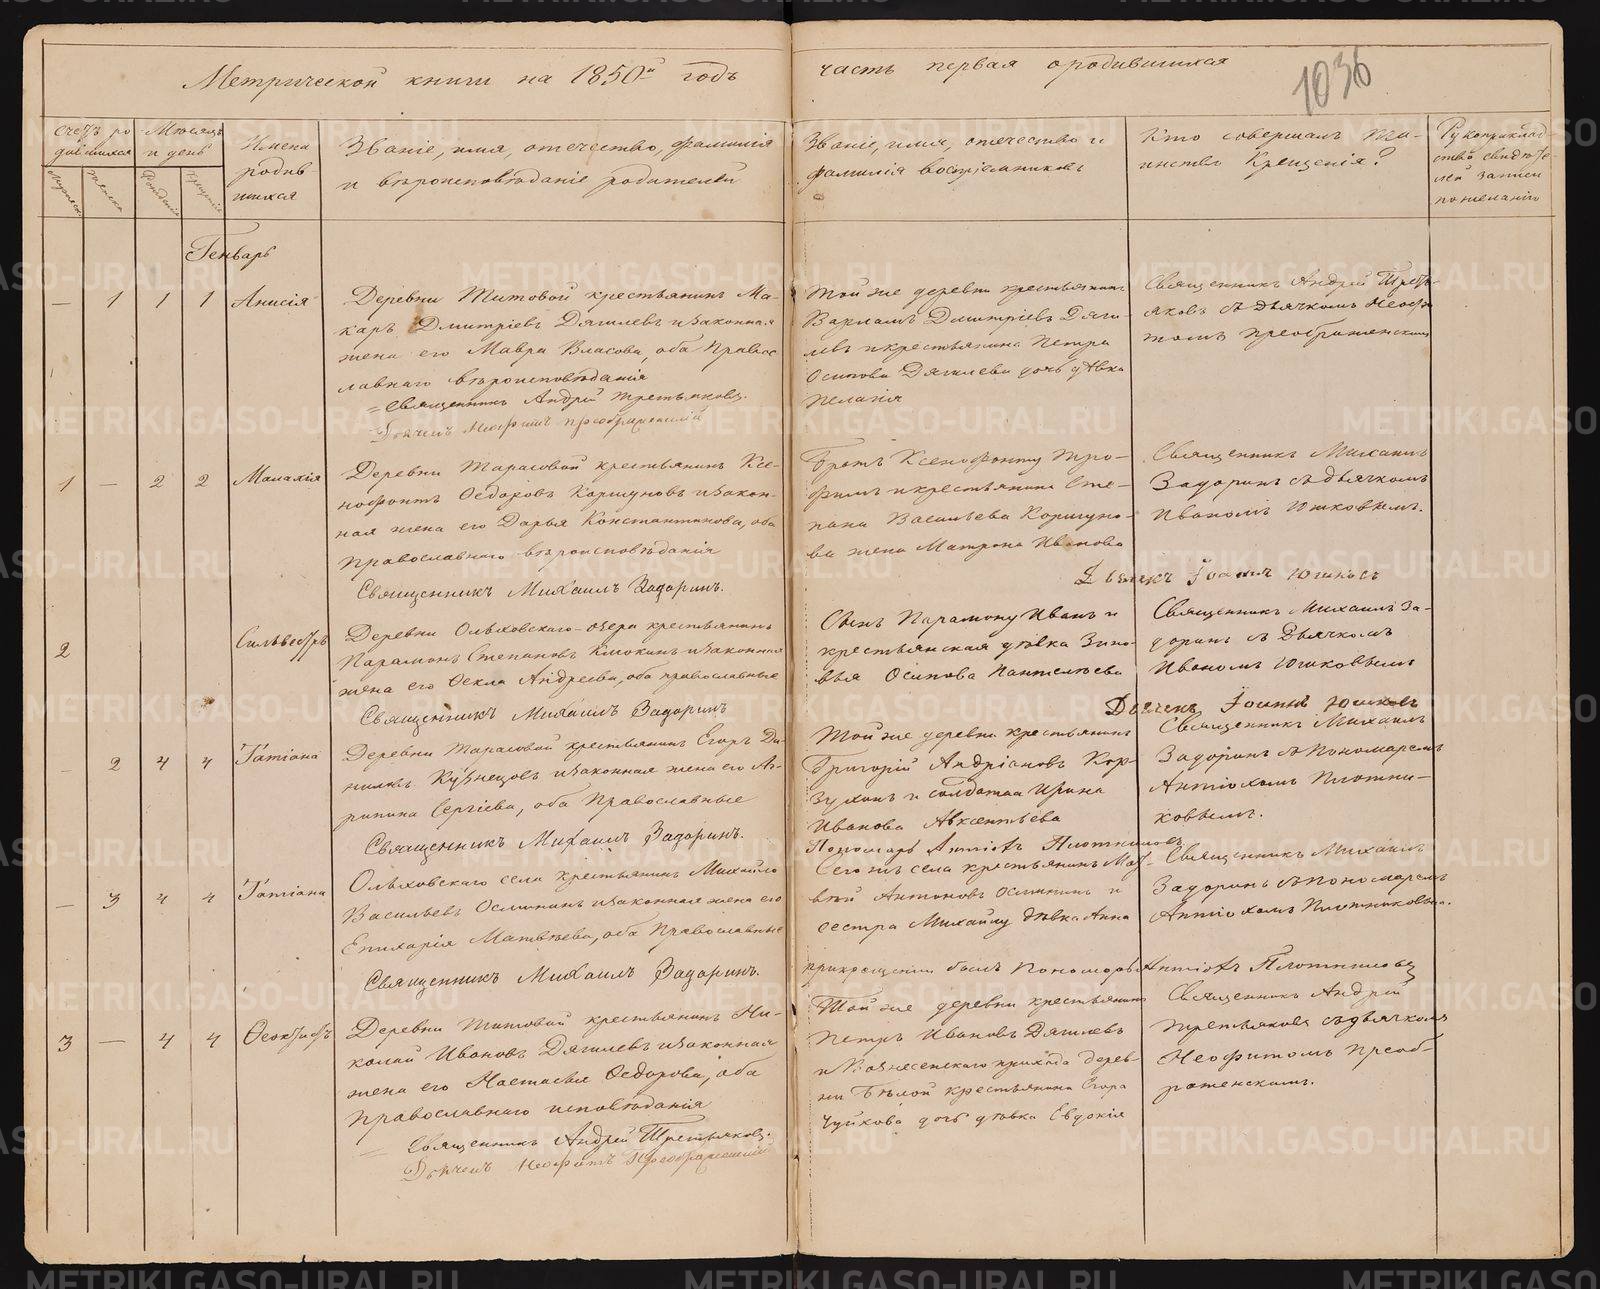 Метрической книги на 1850й годъ
часть первая о родившихся
1036
Счетъ ро-
дившихся
Мѣсяцъ
и день
Имена
родив
шихся
Званіе, имя, отечество, фамилія
и вѣроисповѣданіе родителей
Званіе, имя, отечество и
фамилія воспріемниковъ
Кто совершалъ Та-
инство Крещенія?
Рукоприклад-
ство свидѣте-
лей записи
по желанію
Мужеска
Женска
Рожденія
Крещенія
Генварь
— 1 1 1 Анисія
Деревни Титовой крестьянинъ Ма-
каръ Дмитріевъ Дягилевъ и законная
жена его Мавра Власова, оба Правос
лавнаго вѣроисповѣданія
= Священникъ Андрей Третьяковъ.
Дьячекъ Неофитъ Преображенскій
Той же деревни крестьянинъ
Варламъ Дмитріевъ Дяги-
левъ и крестьянина Петра
Осипова Дягилева дочь дѣвка
Пелагія
Священникъ Андрей Треть-
яковъ съ дьячкомъ Неофи
томъ Преображенскимъ
1 — 2 2 Малахія
Деревни Тарасовой крестьянинъ Ксе-
нофонтъ Ѳедоровъ Коршуновъ и закон-
ная жена его Дарья Константинова, оба
Православнаго вѣроисповѣданія
Священникъ Михаилъ Задоринъ.
Братъ Ксенофонту Тро-
фимъ и крестьянина Сте-
пана Васильева Коршуно-
ва жена Матрона Иванова
Священникъ Михаилъ
Задоринъ съ дьячкомъ
Иваномъ Юшковымъ.
Дьячекъ Іоаннъ Юшковъ
2 Сильвестръ
Деревни Ольховскаго-озера крестьянинъ
Парамонъ Степановъ Клюкинъ и законная
жена его Ѳекла Андреева, оба православные
Священникъ Михаилъ Задоринъ
Сынъ Парамону Иванъ и
крестьянская дѣвка Зино-
вья Осипова Пантелѣева
Священникъ Михаилъ За-
доринъ съ Дьячкомъ
Иваномъ Юшковымъ
Дьячекъ Іоаннъ Юшковъ
— 2 4 4 Татіана
Деревни Тарасовой крестьянинъ Егоръ Да-
ниловъ Кузнецовъ и законная жена его Аг-
рипина Сергіева, оба Православные
Священникъ Михаилъ Задоринъ.
Той же деревни крестьянинъ
Григорій Андріановъ Кор-
зухинъ и солдатка Ирина
Иванова Авксентьева
Пономарь Антіохъ Плотниковъ
Священникъ Михаилъ
Задоринъ съ Пономаремъ
Антіохомъ Плотни-
ковымъ.
— 3 4 4 Татіана
Ольховскаго села крестьянинъ Михайло
Васильевъ Осминин и законная жена его
Епихарія Матвѣева, оба Православные
Священникъ Михаилъ Задоринъ.
Сего жъ села крестьянинъ Мат-
вѣй Антоновъ Осмининъ и
сестра Михайлу дѣвка Анна
Священникъ Михаилъ
Задоринъ съ Пономаремъ
Антіохомъ Плотниковымъ.
при крещеніи былъ Пономарь Антіохъ Плотниковъ
3 — 4 4 Ѳеоктистъ
Деревни Титовой крестьянинъ Ни-
колай Ивановъ Дягилевъ и законная
жена его Настасья Ѳедорова, оба
Православнаго исповѣданія
= Священникъ Андрей Третьяковъ.
Дьячекъ Неофитъ Преображенскій
Той же деревни крестьянинъ
Петръ Ивановъ Дягилевъ
и Вознесенскаго прихода дерев-
ни Бѣлой крестьянина Егора
Чуйкова дочь дѣвка Евдокія
Священникъ Андрей
Третьяковъ съ дьячкомъ
Неофитомъ Преоб-
раженскимъ.
METRIKI.GASO-URAL.RU